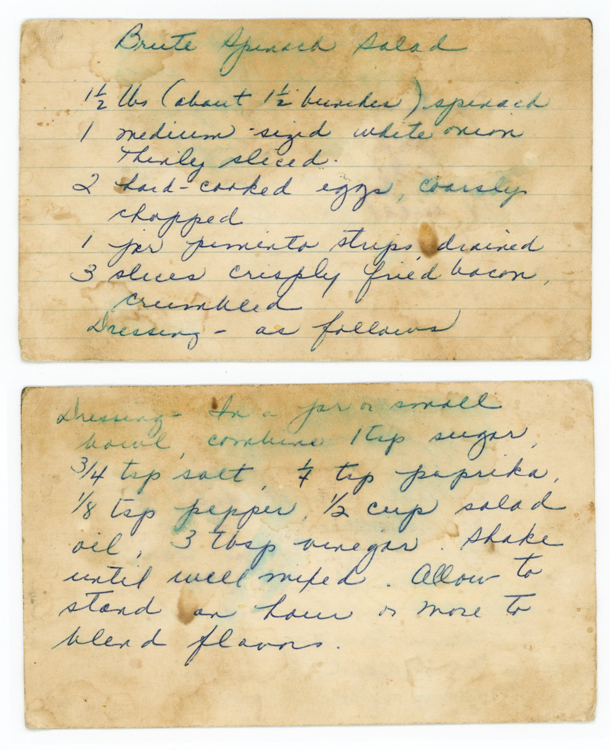 Brute Spinach Salad
1½ lbs (about 1½ bunches) spinach
1 medium-sized white onion
thinly sliced.
2 hard-cooked eggs, coarsly
chopped
1 jar pimento strips, drained
3 slices crisply fried bacon,
crumbled
Dressing - as follows
Dressing - In a jar or small
bowl, combine 1 tsp sugar,
3/4 tsp salt, ¼ tsp paprika,
1/8 tsp pepper, 1/2 cup salad
oil, 3 tbsp vinegar. Shake
until well mixed. Allow to
stand an hour or more to
blend flavors.